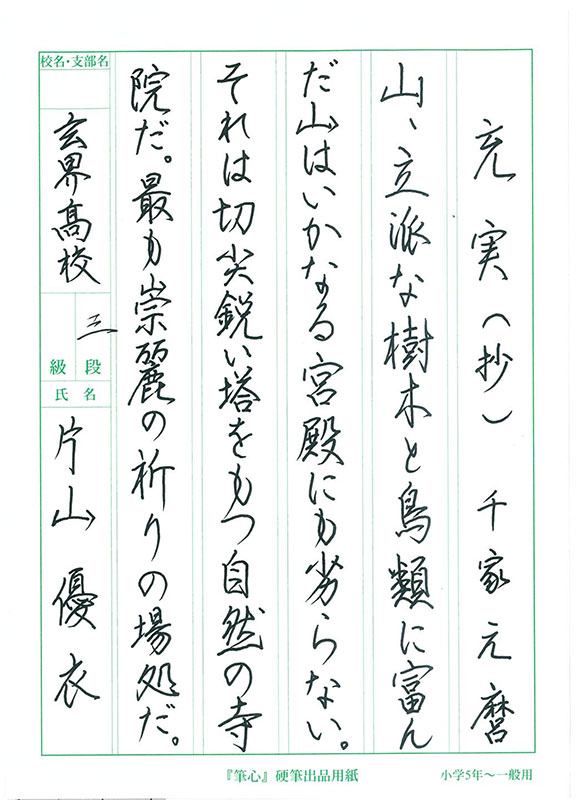 充実(抄) 千家元麿
山、立派な樹木と鳥類に富ん
だ山はいかなる宮殿にも劣らない。
それは切尖鋭い塔をもつ自然の寺
院だ。最も崇麗の祈りの場処だ。
校名・支部名
玄界高校
三
段
級
氏名
片山優衣
『筆心』硬筆出品用紙
小学5年〜一般用